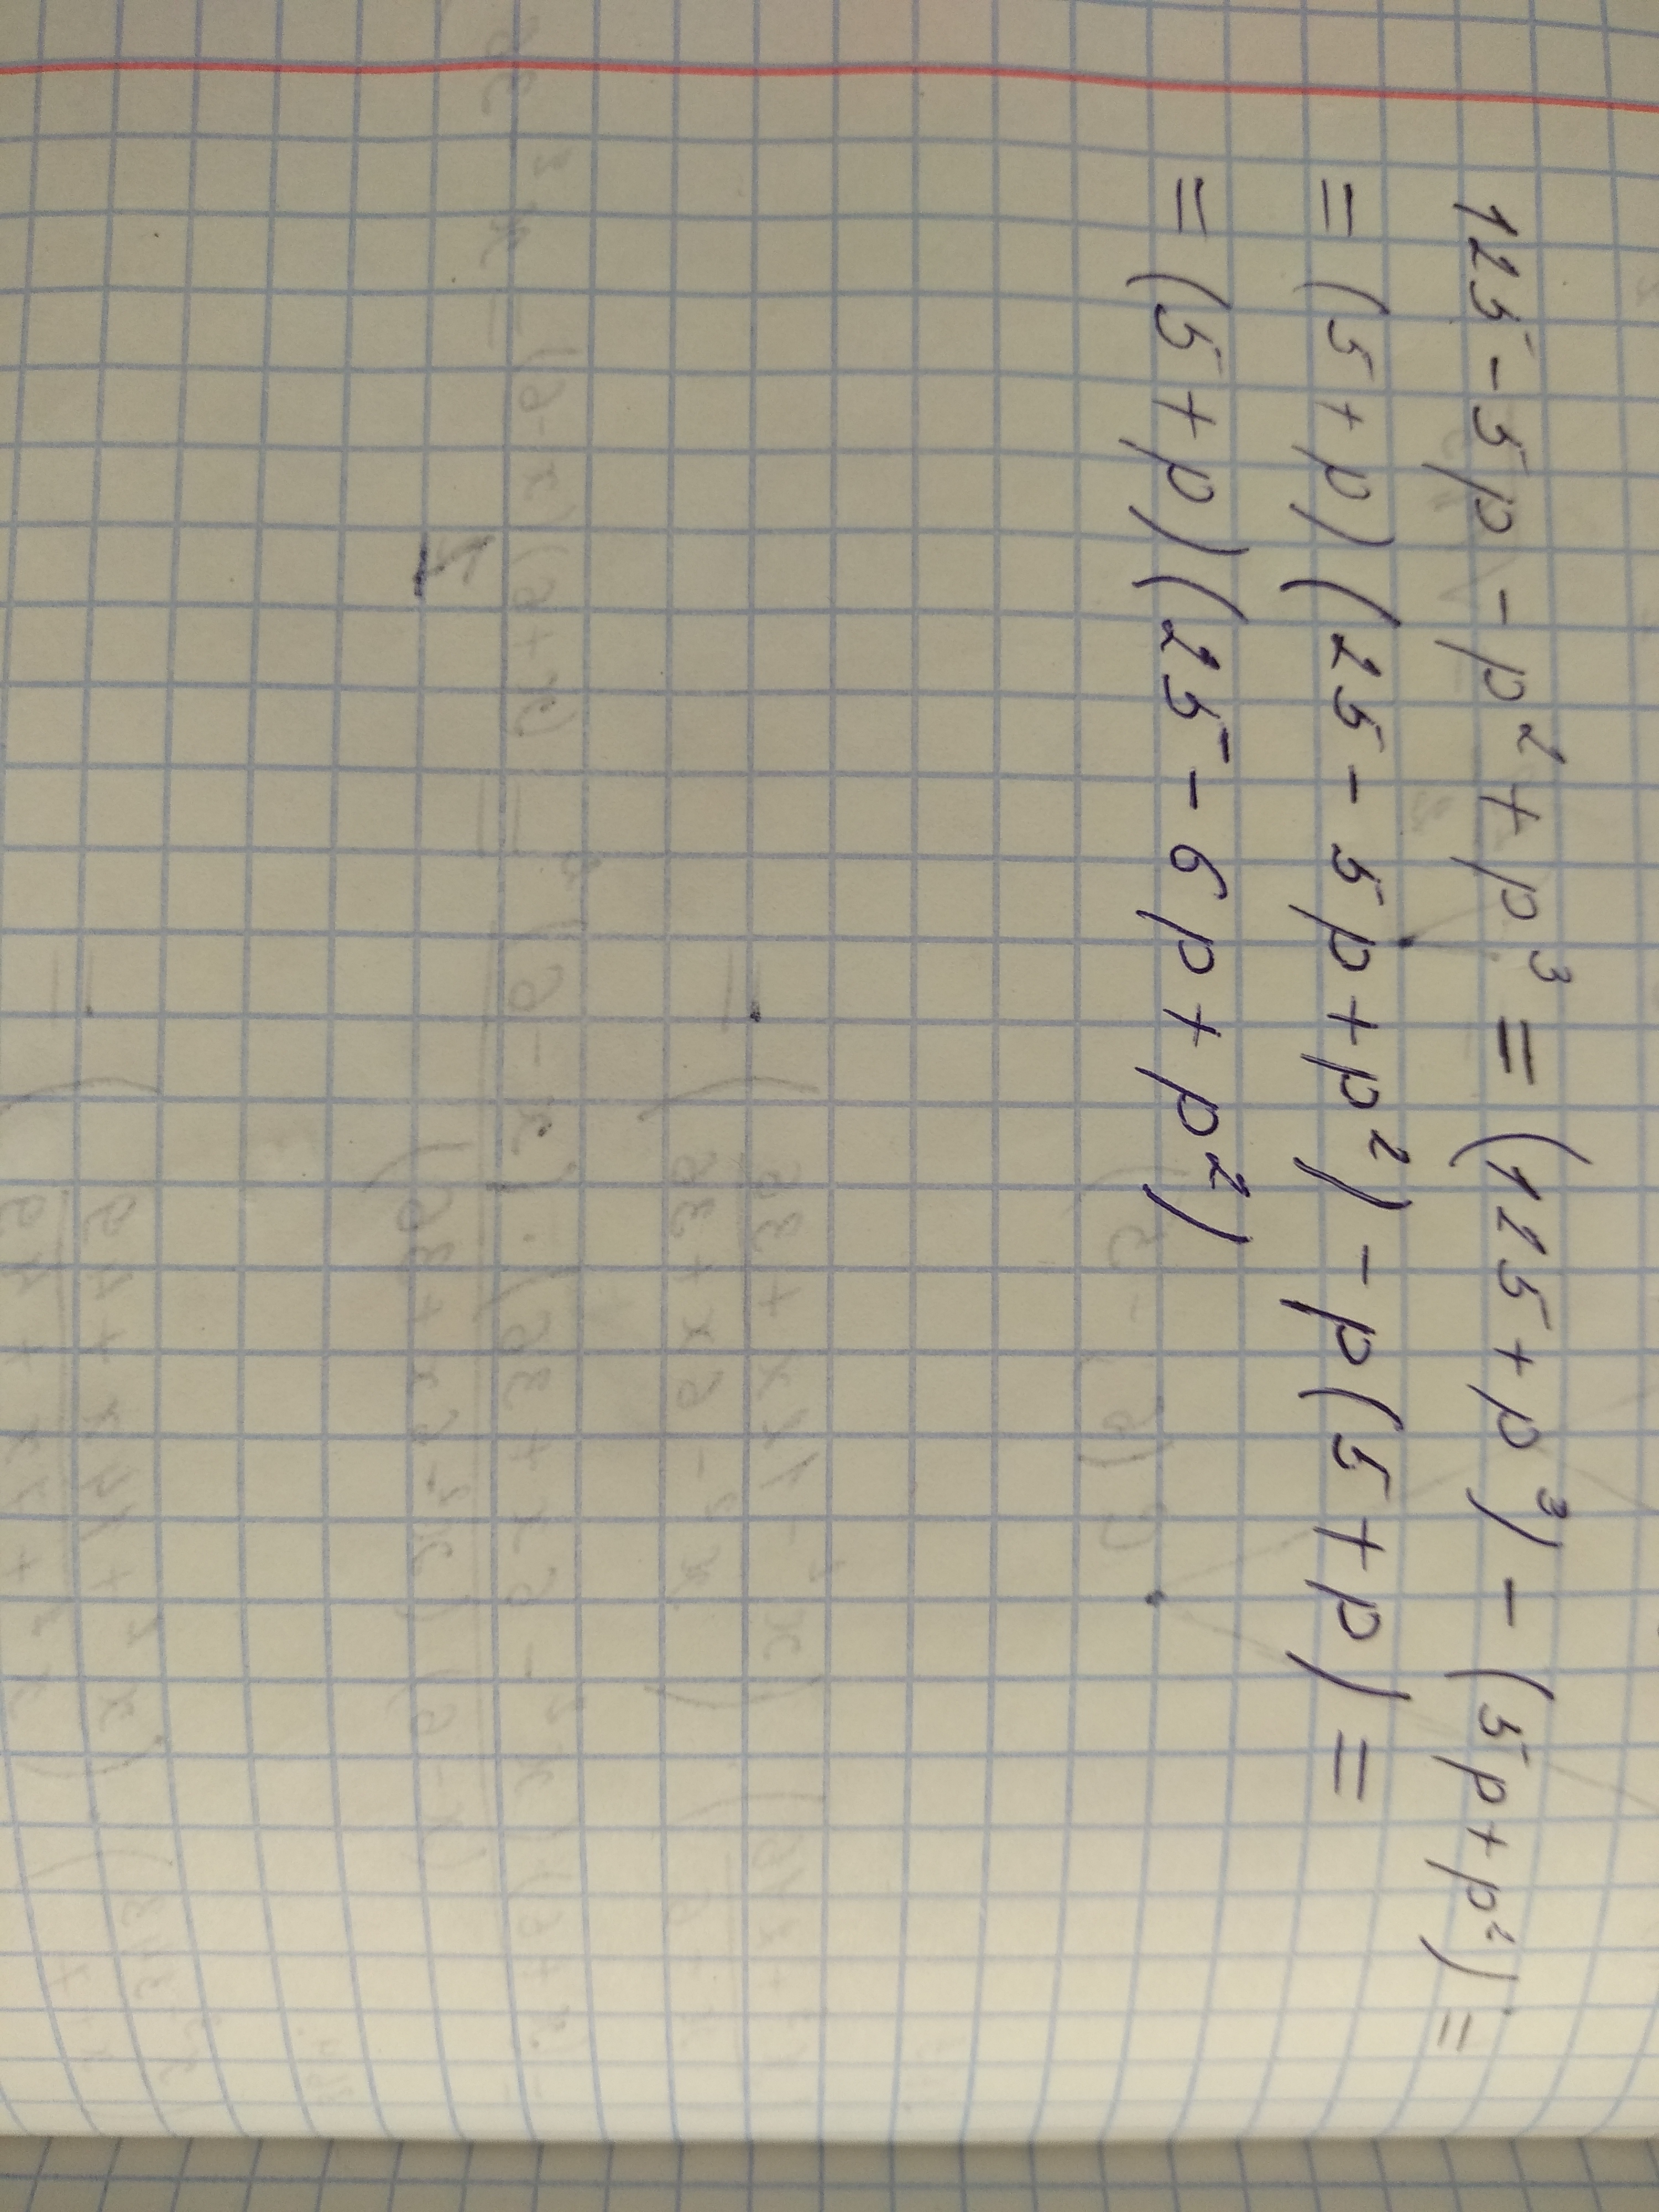 125 - 5p - p² + p³ = (125 + p³) - (5p + p²) =
= (5 + p)(25 - 5p + p²) - p(5 + p) =
= (5 + p)(25 - 6p + p²)